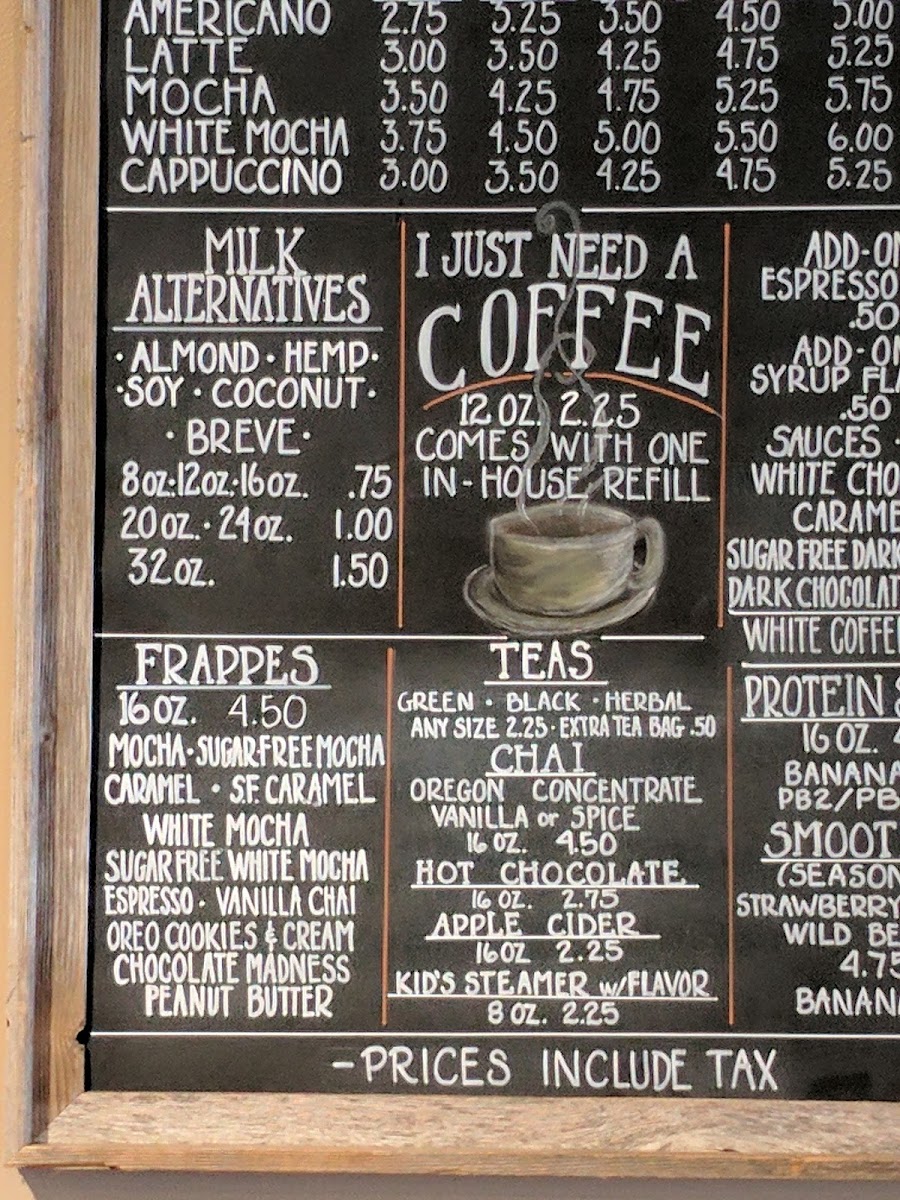 AMERICANO 2.75 3.25 3.50 4.50 5.00
LATTE 3.00 3.50 4.25 4.75 5.25
MOCHA 3.50 4.25 4.75 5.25 5.75
WHITE MOCHA 3.75 4.50 5.00 5.50 6.00
CAPPUCCINO 3.00 3.50 4.25 4.75 5.25
MILK
ALTERNATIVES
· ALMOND · HEMP·
·SOY · COCONUT·
· BREVE·
8oz·12oz·16oz. .75
20oz. · 24oz. 1.00
32oz. 1.50
I JUST NEED A
COFFEE
12 OZ. 2.25
COMES WITH ONE
IN-HOUSE REFILL
ADD-ON
ESPRESSO
.50
ADD-ON
SYRUP FLA
.50
SAUCES ·
WHITE CHO
CARAME
SUGAR FREE DARK
DARK CHOCOLAT
WHITE COFFE
FRAPPES
16 OZ. 4.50
MOCHA · SUGAR-FREE MOCHA
CARAMEL · S.F. CARAMEL
WHITE MOCHA
SUGAR FREE WHITE MOCHA
ESPRESSO · VANILLA CHAI
OREO COOKIES & CREAM
CHOCOLATE MADNESS
PEANUT BUTTER
TEAS
GREEN · BLACK · HERBAL
ANY SIZE 2.25 · EXTRA TEA BAG .50
CHAI
OREGON CONCENTRATE
VANILLA or SPICE
16 OZ. 4.50
HOT CHOCOLATE
16 OZ. 2.75
APPLE CIDER
16OZ 2.25
KID'S STEAMER w/FLAVOR
8 OZ. 2.25
PROTEIN &
16 OZ.
BANANA
PB2/PB
SMOOT
(SEASON
STRAWBERRY
WILD BE
4.75
BANANA
-PRICES INCLUDE TAX